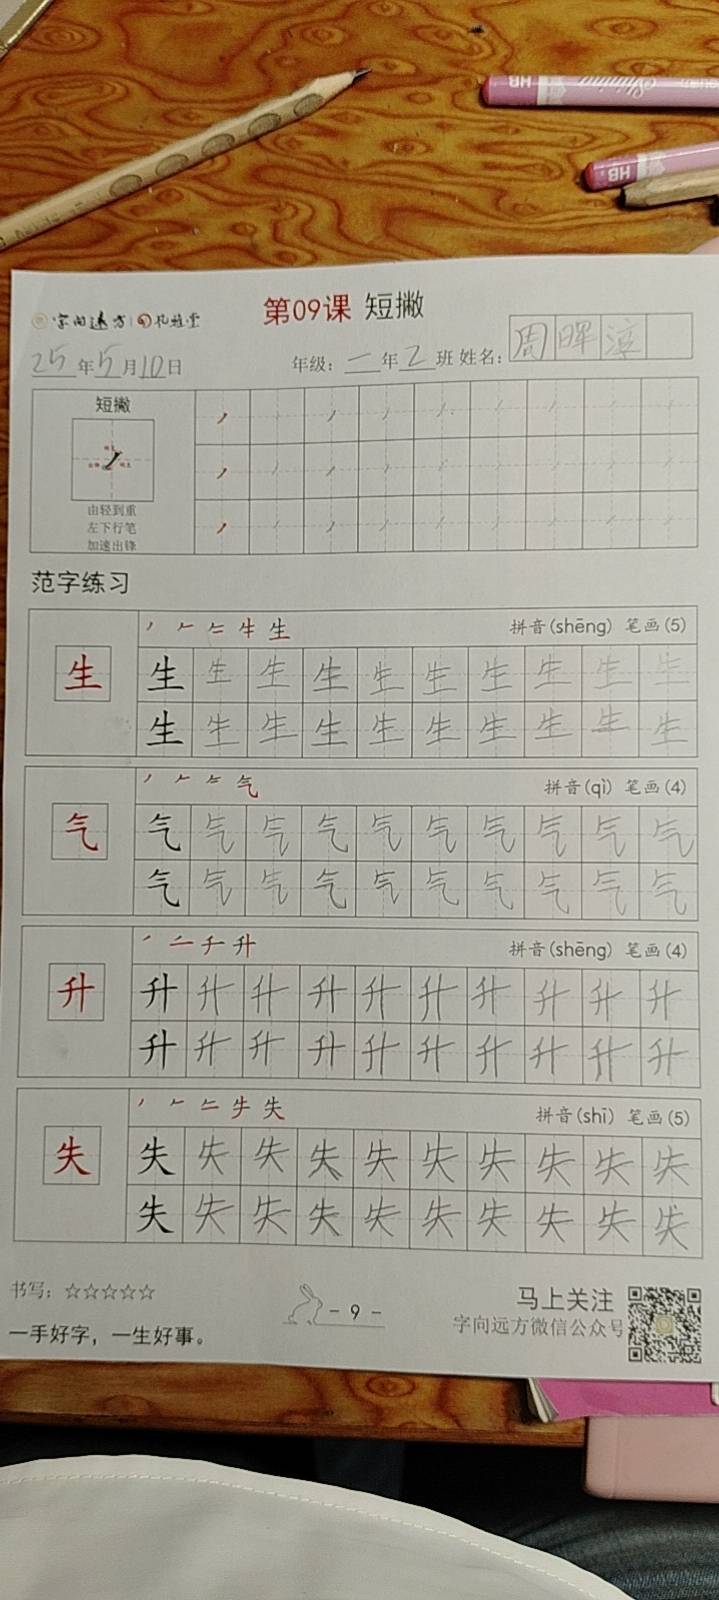 HB Shining
HB
字向远方 孔雅堂
第09课 短撇
25年5月10日 年级：一年2班 姓名：周晖
短撇
由轻到重
左下行笔
加速出锋
范字练习
生 拼音(shēng) 笔画(5)
生 生 生 生 生 生 生 生 生 生 生
生 生 生 生 生 生 生 生 生 生
气 拼音(qì) 笔画(4)
气 气 气 气 气 气 气 气 气 气 气
气 气 气 气 气 气 气 气 气 气
升 拼音(shēng) 笔画(4)
升 升 升 升 升 升 升 升 升 升 升
升 升 升 升 升 升 升 升 升 升
失 拼音(shī) 笔画(5)
失 失 失 失 失 失 失 失 失 失 失
失 失 失 失 失 失 失 失 失 失
书写：☆☆☆☆☆
一手好字，一生好事。
- 9 -
马上关注
字向远方微信公众号